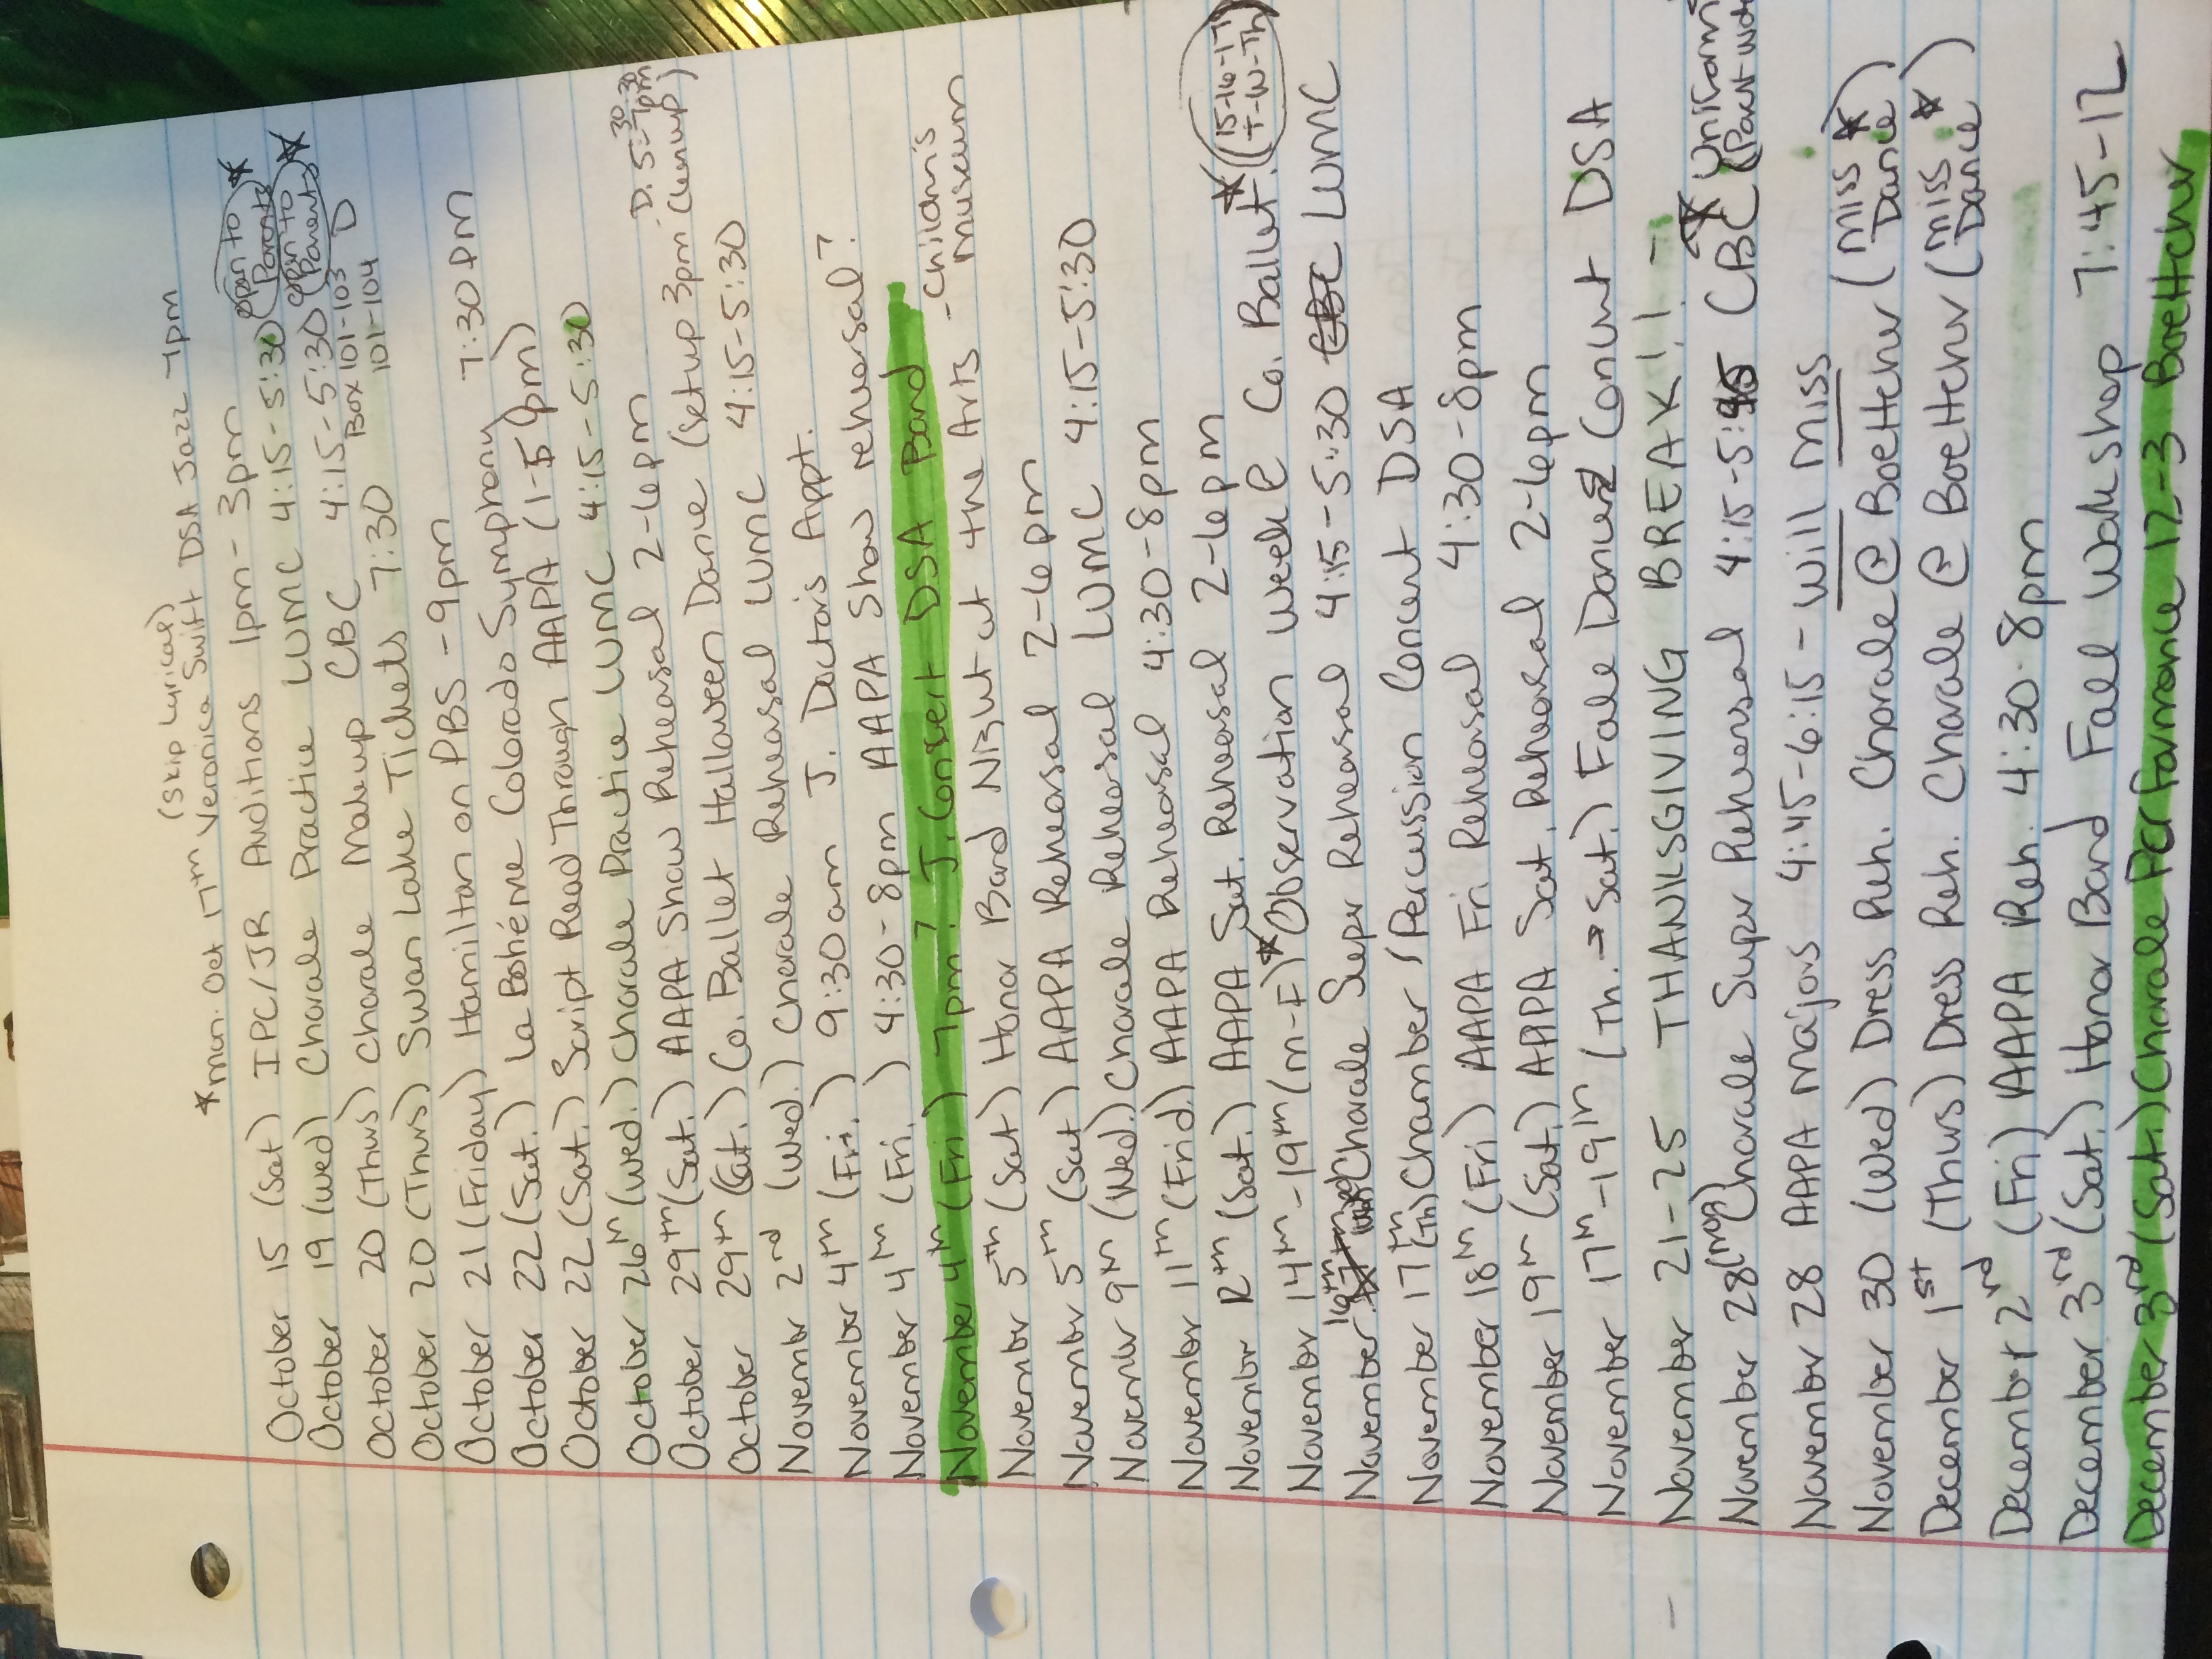 (skip Lyrical)
*mon. Oct 17th Veronica Swift DSA Jazz 7pm
October 15 (Sat) IPC/JR Auditions 1pm-3pm
October 19 (wed) Chorale Practice LUMC 4:15-5:30 (open to Parents) *
October 20 (Thurs) Chorale Makeup CBC 4:15-5:30 (open to Parents) *
October 20 (Thurs) Swan Lake Tickets 7:30 Box 101-103 D 101-104
October 21 (Friday) Hamilton on PBS - 9pm
October 22 (Sat.) La Bohéme Colorado Symphony 7:30pm
October 22 (Sat.) Script Read Through AAPA (1-5pm)
October 26th (wed.) Chorale Practice LUMC 4:15-5:30
October 29th (Sat.) AAPA Show Rehearsal 2-6pm
October 29th (Sat.) Co. Ballet Halloween Dance (setup 3pm D. 5:30-7pm Cleanup)
November 2nd (Wed.) Chorale Rehearsal LUMC 4:15-5:30
November 4th (Fri.) 9:30am J. Doctor's Appt.
November 4th (Fri.) 4:30-8pm AAPA Show rehearsal?
November 4th (Fri) 7pm? J. Consert DSA Band
November 5th (Sat) Honor Band Night at the Arts - Children's museum
November 5th (Sat) AAPA Rehearsal 2-6pm
November 9th (Wed.) Chorale Rehersal LUMC 4:15-5:30
November 11th (Frid.) AAPA Rehearsal 4:30-8pm
November 12th (Sat.) AAPA Sat. Rehearsal 2-6pm
November 14th-19th (m-F) * Observation Week @ Co. Ballet. * (15-16-17 T-W-Th)
November 16th Chorale Super Rehearsal 4:15-5:30 LUMC
November 17th (Th) Chamber/Percussion Concert DSA
November 18th (Fri) AAPA Fri Rehearsal 4:30-8pm
November 19th (Sat.) AAPA Sat. Rehearsal 2-6pm
November 17th-19th (Th.→Sat.) Fall Dance Concert DSA
November 21-25 THANKSGIVING BREAK!!
November 28 (mon) Chorale Super Rehearsal 4:15-5:45 CBC * Uniforms (Parent
November 28 AAPA Majors 4:45-6:15 - will miss
November 30 (Wed) Dress Reh. Chorale @ Boettcher (miss Dance) *
December 1st (Thurs) Dress Reh. Chorale @ Boettcher (miss Dance) *
December 2rd (Fri) AAPA Reh. 4:30-8pm
December 3rd (Sat.) Honor Band Fall Workshop 7:45-12
December 3rd (Sat.) Chorale Performance 12-3 Boettcher